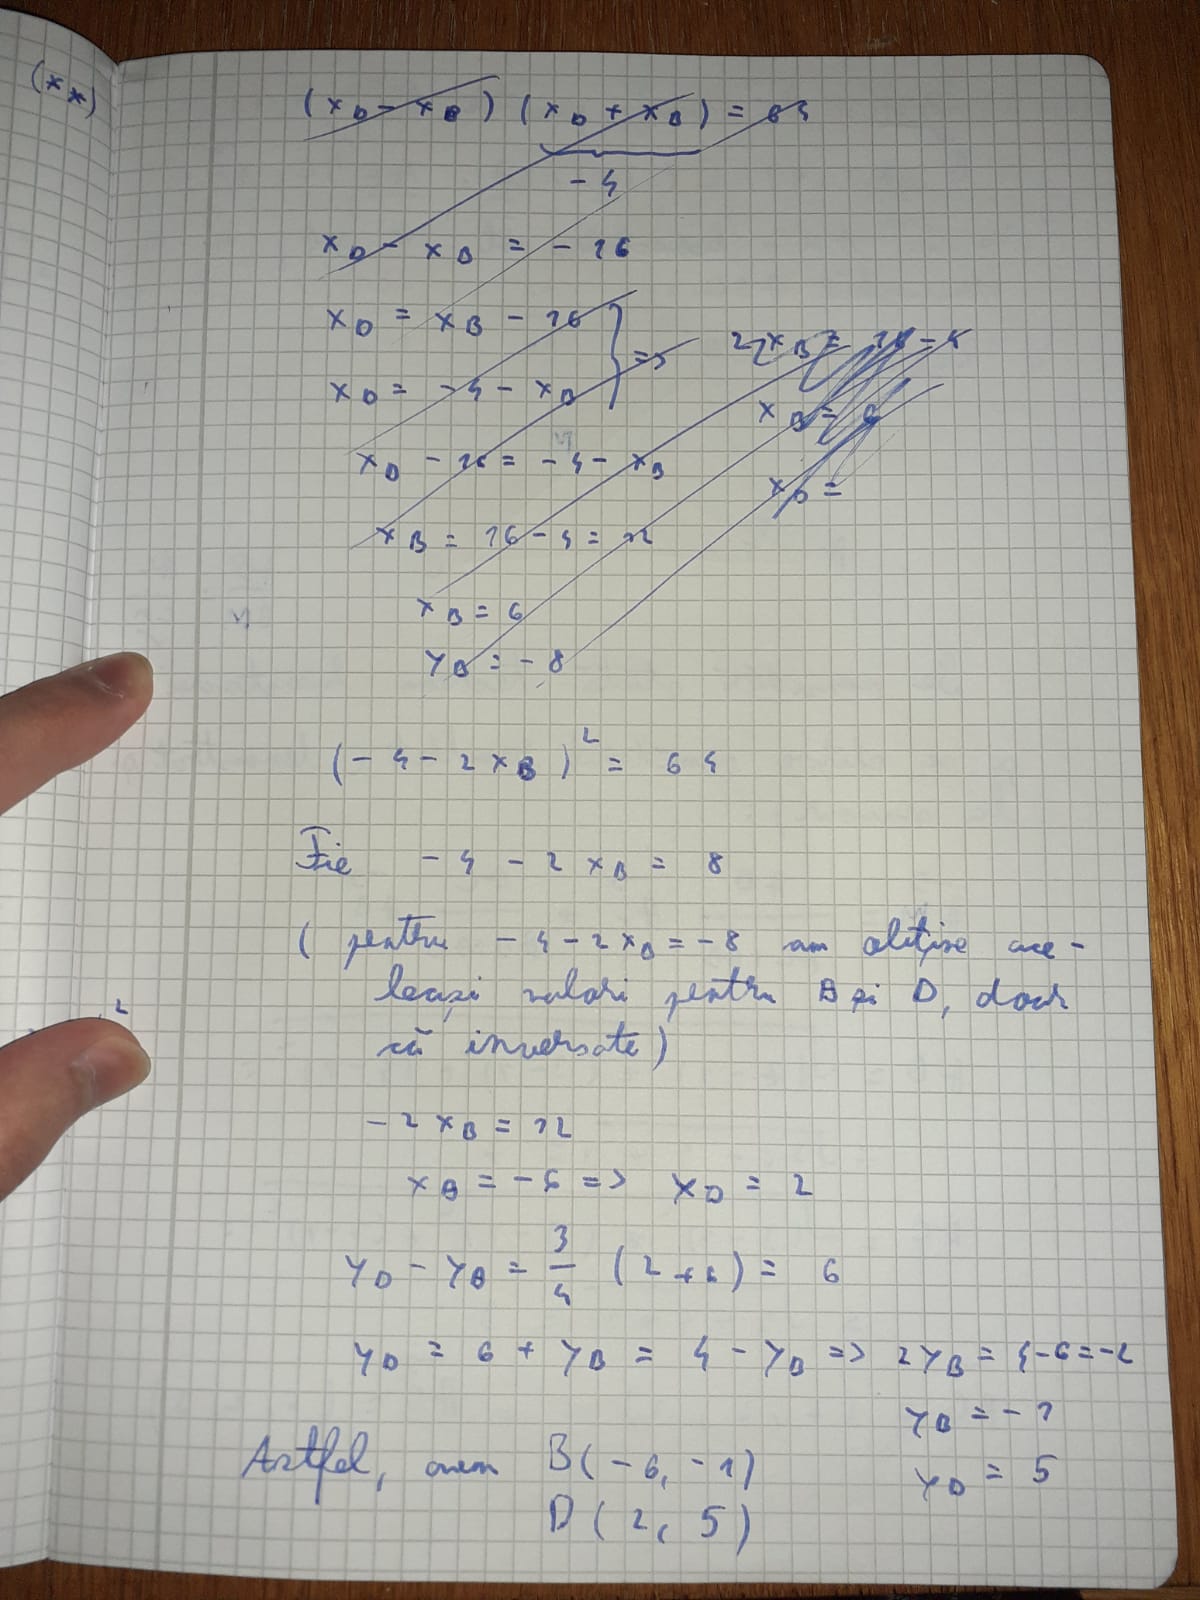 (**)
(x_D - x_B) (x_D + x_B) = 64
-4
x_D - x_B = -16
x_D = x_B - 16
x_D = -4 - x_B } =>
2x_B = 16 - 4
x_B = 6
x_D =
x_B - 16 = -4 - x_B
x_B = 16 - 4 = 12
x_B = 6
y_B = -8
(-4 - 2x_B)² = 64
Fie -4 - 2x_B = 8
(pentru -4 - 2x_B = -8 am obține ace-
leași valori pentru B și D, doar
că inversate)
-2x_B = 12
x_B = -6 => x_D = 2
y_D - y_B = 3/4 (2+6) = 6
y_D = 6 + y_B = 4 - y_B => 2y_B = 4-6 = -2
y_B = -1
y_D = 5
Astfel, avem B(-6, -1)
D(2, 5)
2